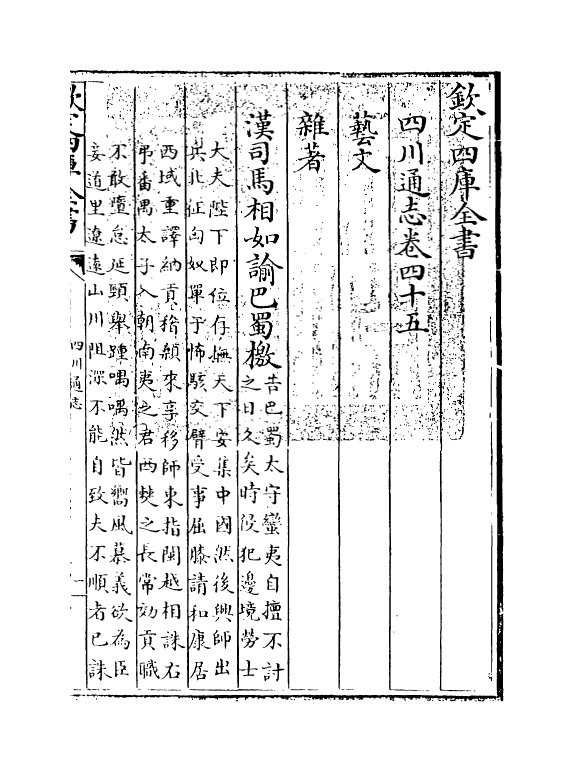 欽定四庫全書
四川通志卷四十五
藝文
雜著
漢司馬相如諭巴蜀檄
告巴蜀太守蠻夷自擅不討
之日久矣時侵犯邊境勞士
大夫陛下即位存撫天下安集中國然後興師出
兵北征匈奴單于怖駭交臂受事屈膝請和康居
西域重譯納貢稽顙來享移師東指閩越相誅右
弔番禺太子入朝南夷之君西僰之長常効貢職
不敢墮怠延頸舉踵喁喁然皆嚮風慕義欲為臣
妾道里遼遠山川阻深不能自致夫不順者已誅
欽定四庫全書
四川通志
一